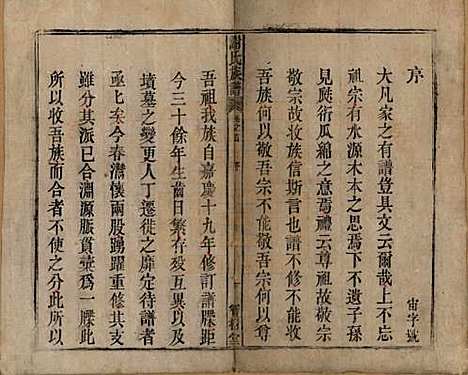 宙字號
序
大凡家之有譜豈具文云爾哉上不忘
祖宗有水源木本之思焉下不遺子孫
見瓞衍瓜緜之意焉禮云尊祖故敬宗
敬宗故收族信斯言也譜不修吾宗何以尊
吾族何以敬吾宗不能敬吾宗何以尊
謝氏族譜
卷之首
序
一
寶樹堂
吾祖我族自嘉慶十九年修訂譜牒距
今三十餘年生齒日繁存殁互異以及
墳墓之變更人丁遷徙之靡定待譜者
亟亟矣今春澹懷兩股踴躍重修其支
雖分其派已合淵源脈貫彙為一牒此
所以收吾族而合者不使之分此所以